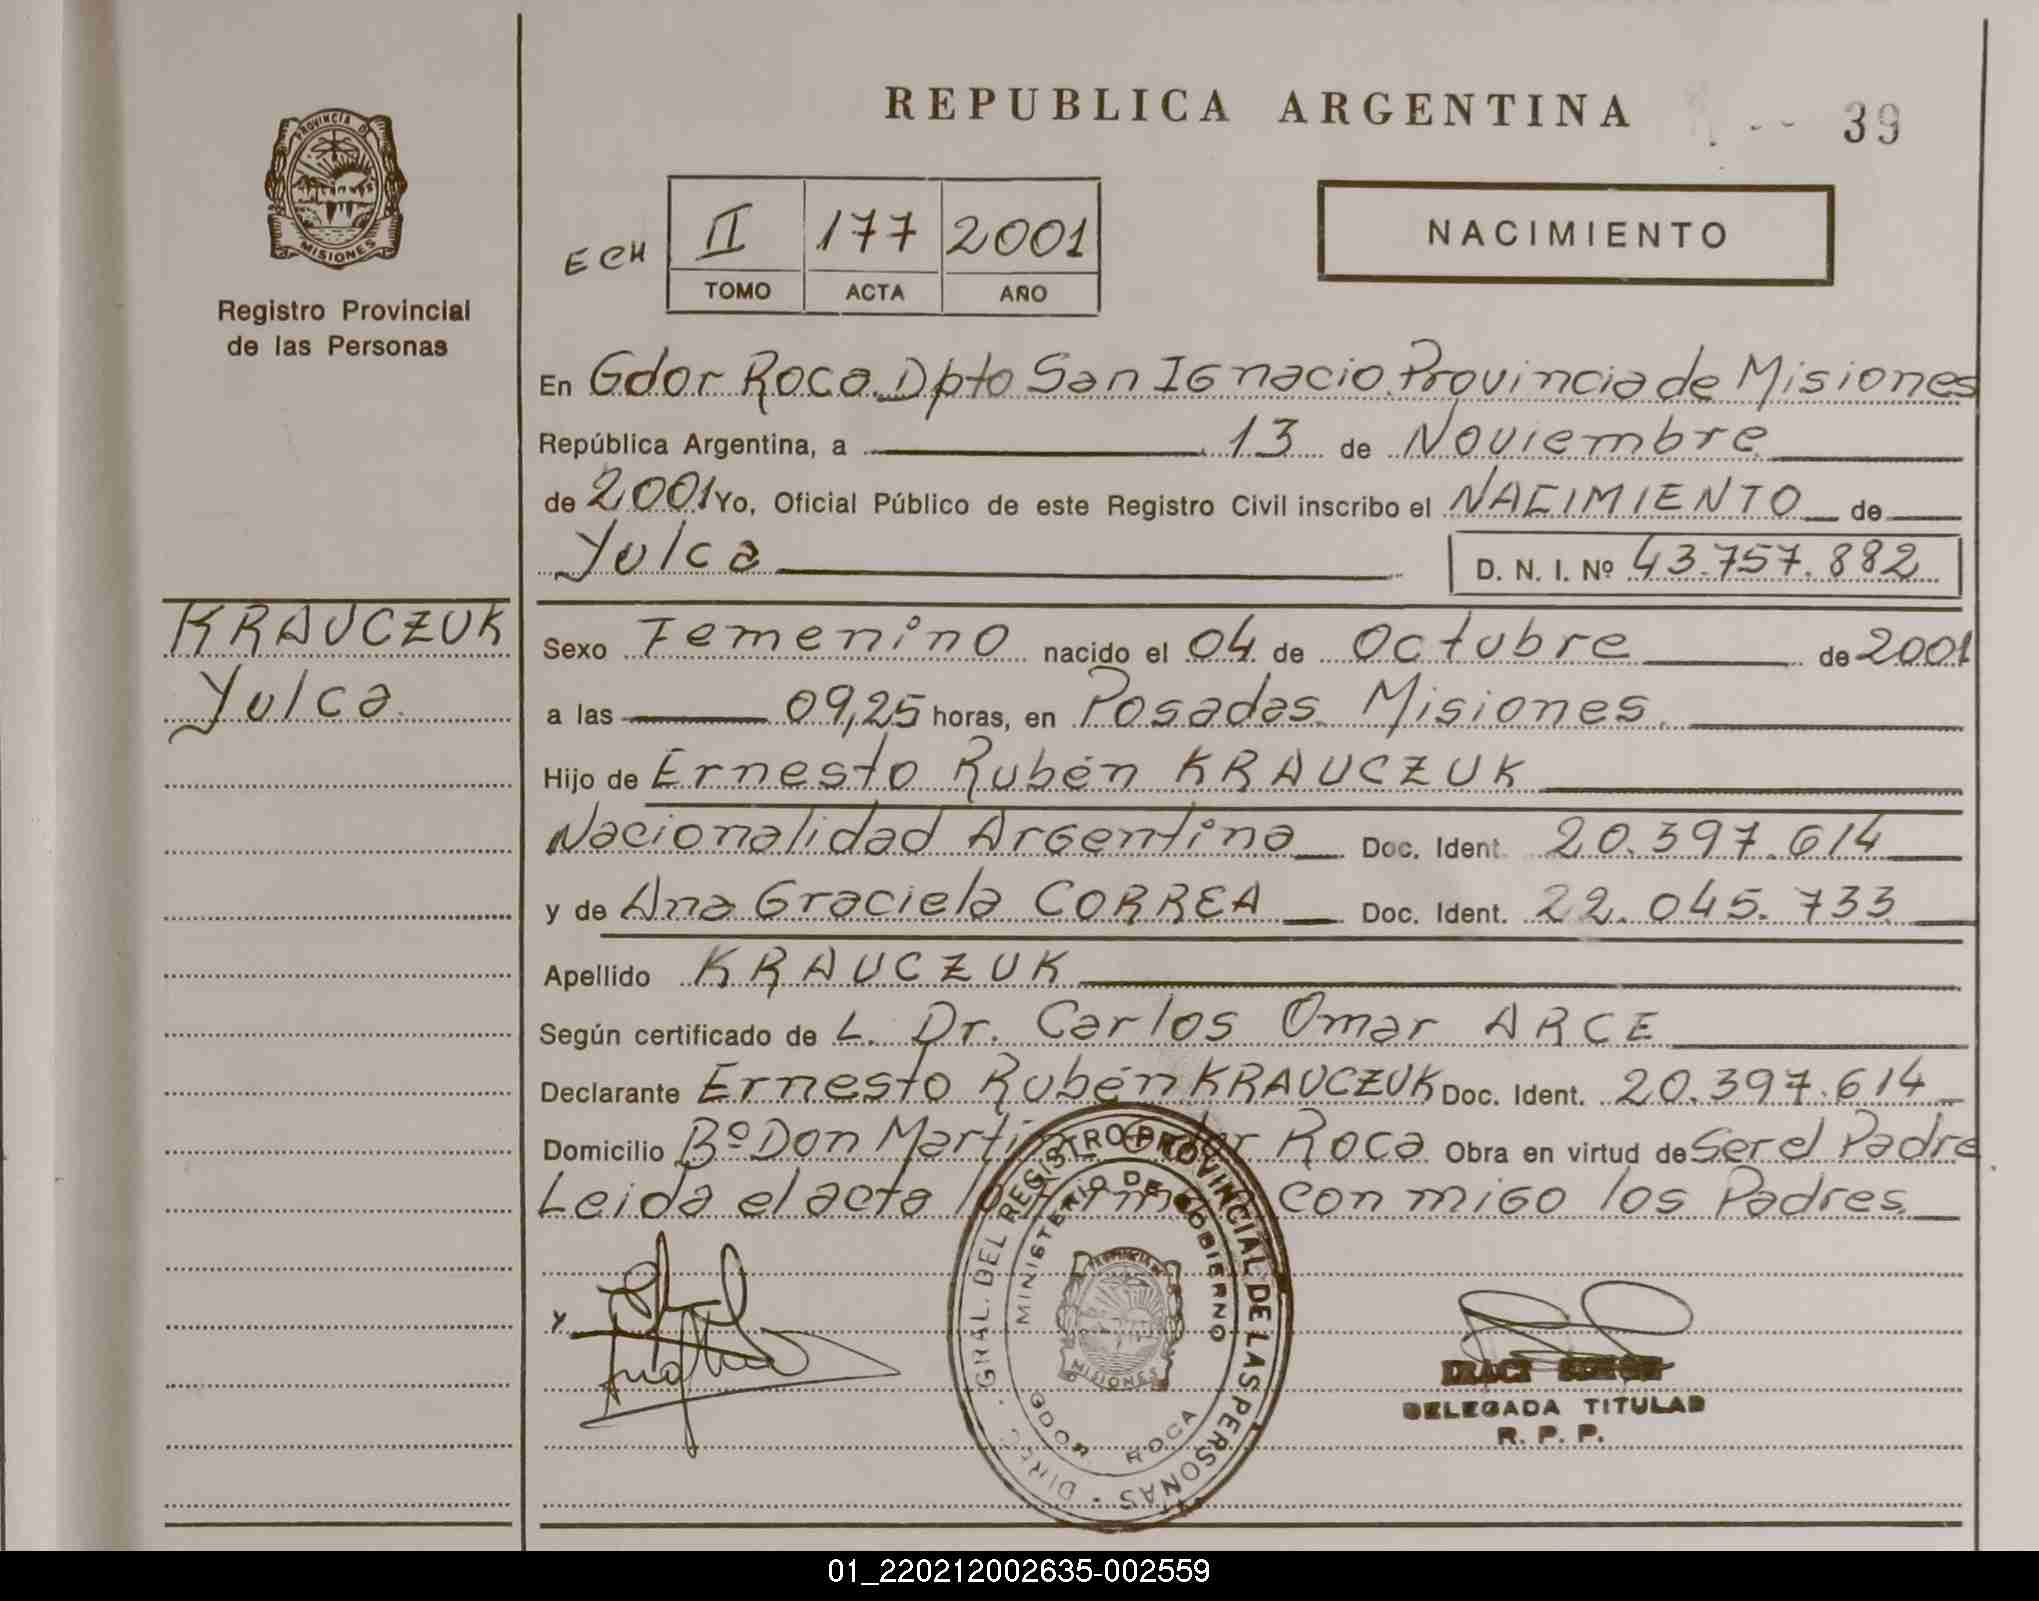 REPUBLICA ARGENTINA
39
PROVINCIA DE
MISIONES
Registro Provincial
de las Personas
ECH
II 177 2001
TOMO ACTA AÑO
NACIMIENTO
En Gdor Roca Dpto San Ignacio Provincia de Misiones
República Argentina, a 13 de Noviembre
de 2001 Yo, Oficial Público de este Registro Civil inscribo el NACIMIENTO de
Yulca D. N. I. Nº 43.757.882
KRAUCZUK
Yulca
Sexo Femenino nacido el 04 de Octubre de 2001
a las 09,25 horas, en Posadas Misiones.
Hijo de Ernesto Rubén KRAUCZUK
Nacionalidad Argentina Doc. Ident. 20.397.614
y de Ana Graciela CORREA Doc. Ident. 22.045.733
Apellido KRAUCZUK
Según certificado de L. Dr. Carlos Omar ARCE
Declarante Ernesto Rubén KRAUCZUK Doc. Ident. 20.397.614
Domicilio Bº Don Martin Gdor Roca Obra en virtud de Ser el Padre
Leida el acta conmigo los Padres
DIREC. GRAL. DEL REGISTRO PROVINCIAL DE LAS PERSONAS
MINISTERIO DE GOBIERNO
MISIONES
GDOR. ROCA
DELEGADA TITULAR
R. P. P.
01_220212002635-002559